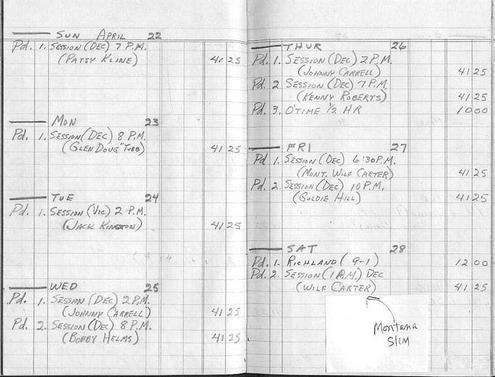 SUN APRIL 22
Pd. 1. SESSION (DEC) 7 P.M.
(PATSY KLINE) 41 25
MON 23
Pd. 1. SESSION (DEC) 8 P.M.
(GLEN DOUG "TUBB) 41 25
TUE 24
Pd. 1. SESSION (VIC) 2 P.M.
(JACK KINGSTON) 41 25
WED 25
Pd. 1. SESSION (DEC) 2 P.M.
(JOHNNY CARRELL) 41 25
Pd. 2. SESSION (DEC) 8 P.M.
(BOBBY HELMS) 41 25
THUR 26
Pd. 1. SESSION (DEC) 2 P.M.
(JOHNNY CARRELL) 41 25
Pd. 2. SESSION (DEC) 7 P.M.
(KENNY ROBERTS) 41 25
Pd. 3. O'TIME 1/2 HR 10 00
FRI 27
Pd. 1. SESSION (DEC) 6:30 P.M.
(MONT. WILF CARTER) 41 25
Pd. 2. SESSION (DEC) 10 P.M.
(GOLDIE HILL) 41 25
SAT 28
Pd. 1. RICHLAND (9-1) 12 00
Pd. 2. SESSION (1 P.M.) DEC
(WILF CARTER) 41 25
Montana
SLIM